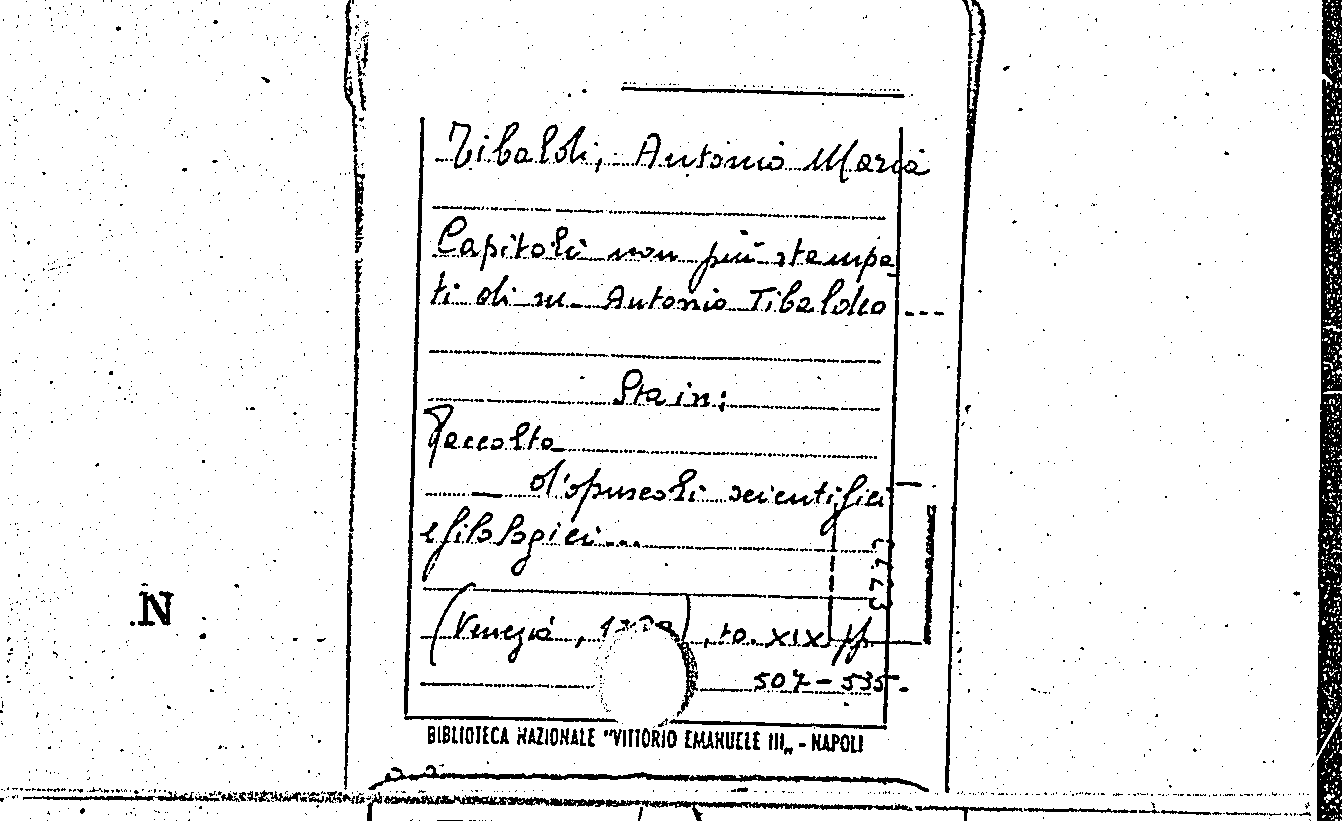 Tibaldi, Antonio Maria
Capitoli non più stampa-
ti di m. Antonio Tibaldeo
Sta in:
Raccolta
d'opuscoli scientifici
e filologici...
(Venezia, ), to. XIX pp.
507-535.
N
BIBLIOTECA NAZIONALE "VITTORIO EMANUELE III„ - NAPOLI